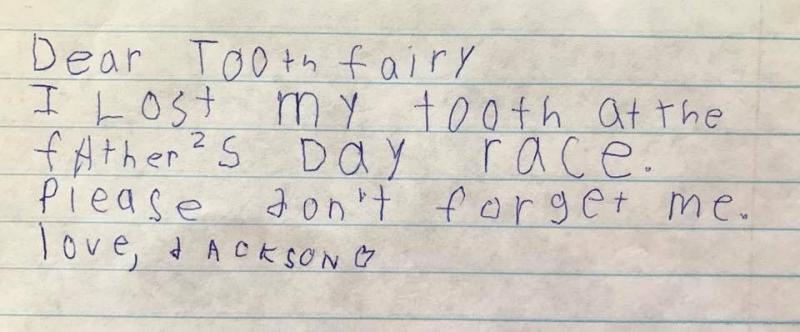 Dear Tooth fairy
I Lost my tooth at the
fAther's Day race.
Please don't forget me.
love, JACKSON